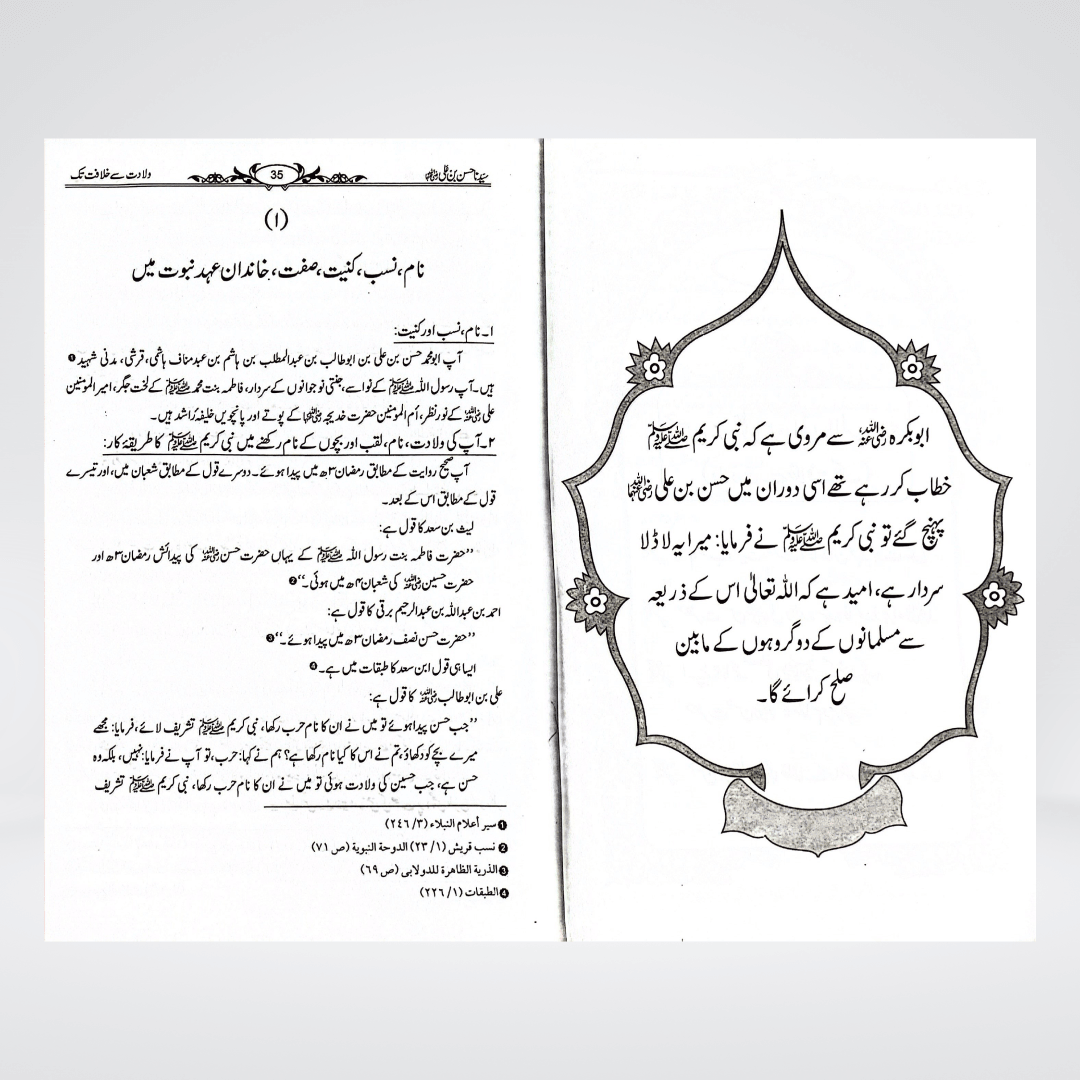 ابوبکرہ رضی اللہ عنہ سے مروی ہے کہ نبی کریم ﷺ
خطاب کر رہے تھے اسی دوران میں حسن بن علی رضی اللہ عنہما
پہنچ گئے تو نبی کریم ﷺ نے فرمایا: میرا یہ لاڈلا
سردار ہے، امید ہے کہ اللہ تعالیٰ اس کے ذریعہ
سے مسلمانوں کے دو گروہوں کے مابین
صلح کرائے گا۔
سیدنا حسن بن علی رضی اللہ عنہ 35 ولادت سے خلافت تک
(۱)
نام، نسب، کنیت، صفت، خاندان عہد نبوت میں
۱۔ نام، نسب اور کنیت:
آپ ابومحمد حسن بن علی بن ابوطالب بن عبدالمطلب بن ہاشم بن عبد مناف ہاشمی، قرشی، مدنی شہید ❶
ہیں۔ آپ رسول اللہ ﷺ کے نواسے، جنتی نوجوانوں کے سردار، فاطمہ بنت محمد ﷺ کے لخت جگر، امیر المومنین
علی رضی اللہ عنہ کے نور نظر، اُم المومنین حضرت خدیجہ رضی اللہ عنہا کے پوتے اور پانچویں خلیفہ راشد ہیں۔
۲۔ آپ کی ولادت، نام، لقب اور بچوں کے نام رکھنے میں نبی کریم ﷺ کا طریقۂ کار:
آپ صحیح روایت کے مطابق رمضان ۳ھ میں پیدا ہوئے۔ دوسرے قول کے مطابق شعبان میں، اور تیسرے
قول کے مطابق اس کے بعد۔
لیث بن سعد کا قول ہے:
’’حضرت فاطمہ بنت رسول اللہ ﷺ کے یہاں حضرت حسن رضی اللہ عنہ کی پیدائش رمضان ۳ھ اور
حضرت حسین رضی اللہ عنہ کی شعبان ۴ھ میں ہوئی۔‘‘ ❷
احمد بن عبداللہ بن عبدالرحیم برقی کا قول ہے:
’’حضرت حسن نصف رمضان ۳ھ میں پیدا ہوئے۔‘‘ ❸
ایسا ہی قول ابن سعد کا طبقات میں ہے۔ ❹
علی بن ابوطالب رضی اللہ عنہ کا قول ہے:
’’جب حسن پیدا ہوئے تو میں نے ان کا نام حرب رکھا، نبی کریم ﷺ تشریف لائے، فرمایا: مجھے
میرے بچے کو دکھاؤ، تم نے اس کا کیا نام رکھا ہے؟ ہم نے کہا: حرب، تو آپ نے فرمایا: نہیں، بلکہ وہ
حسن ہے، جب حسین کی ولادت ہوئی تو میں نے ان کا نام حرب رکھا، نبی کریم ﷺ تشریف
❶ سير أعلام النبلاء (٣/ ٢٤٦)
❷ نسب قريش (١/ ٢٣) الدوحة النبوية (ص ٧١)
❸ الذرية الطاهرة للدولابى (ص ٦٩)
❹ الطبقات (١/ ٢٢٦)